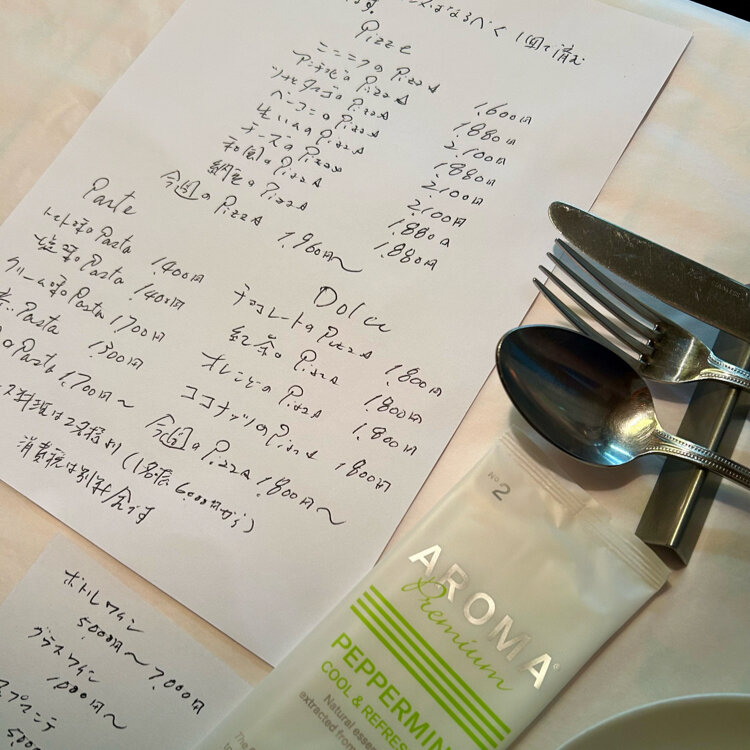 1回で済む
Pizze
ニンニクのPizza 1.600円
アンチョビのPizza 1.880円
ソーセージのPizza 2.100円
ベーコンのPizza 1.880円
生ハムのPizza 2.100円
チーズのPizza 2.100円
和風のPizza 1.880円
納豆のPizza 1.880円
今週のPizza 1.960円〜
Paste
トマト味のPasta 1.400円
塩味のPasta 1.400円
クリーム味のPasta 1.700円
Pasta 1.300円
のPasta 1.700円〜
Dolce
チョコレートのPizza 1.800円
紅茶のPizza 1.800円
オレンジのPizza 1.800円
ココナッツのPizza 1.800円
今週のPizza 1.800円〜
ス料理は2名様より (1名様6000円から)
消費税は別料金です
ボトルワイン
5,000円〜7,000円
グラスワイン
1000円〜
No. 2
AROMA
Premium
PEPPERMIN
COOL & REFRES
Natural esse
extracted from
The